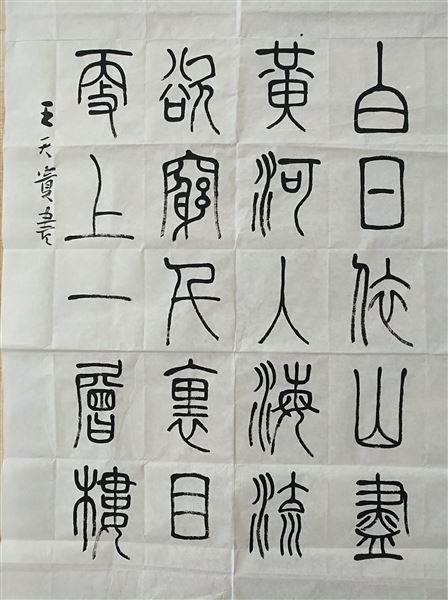 白日依山盡
黃河入海流
欲窮千裏目
更上一層樓
王天書